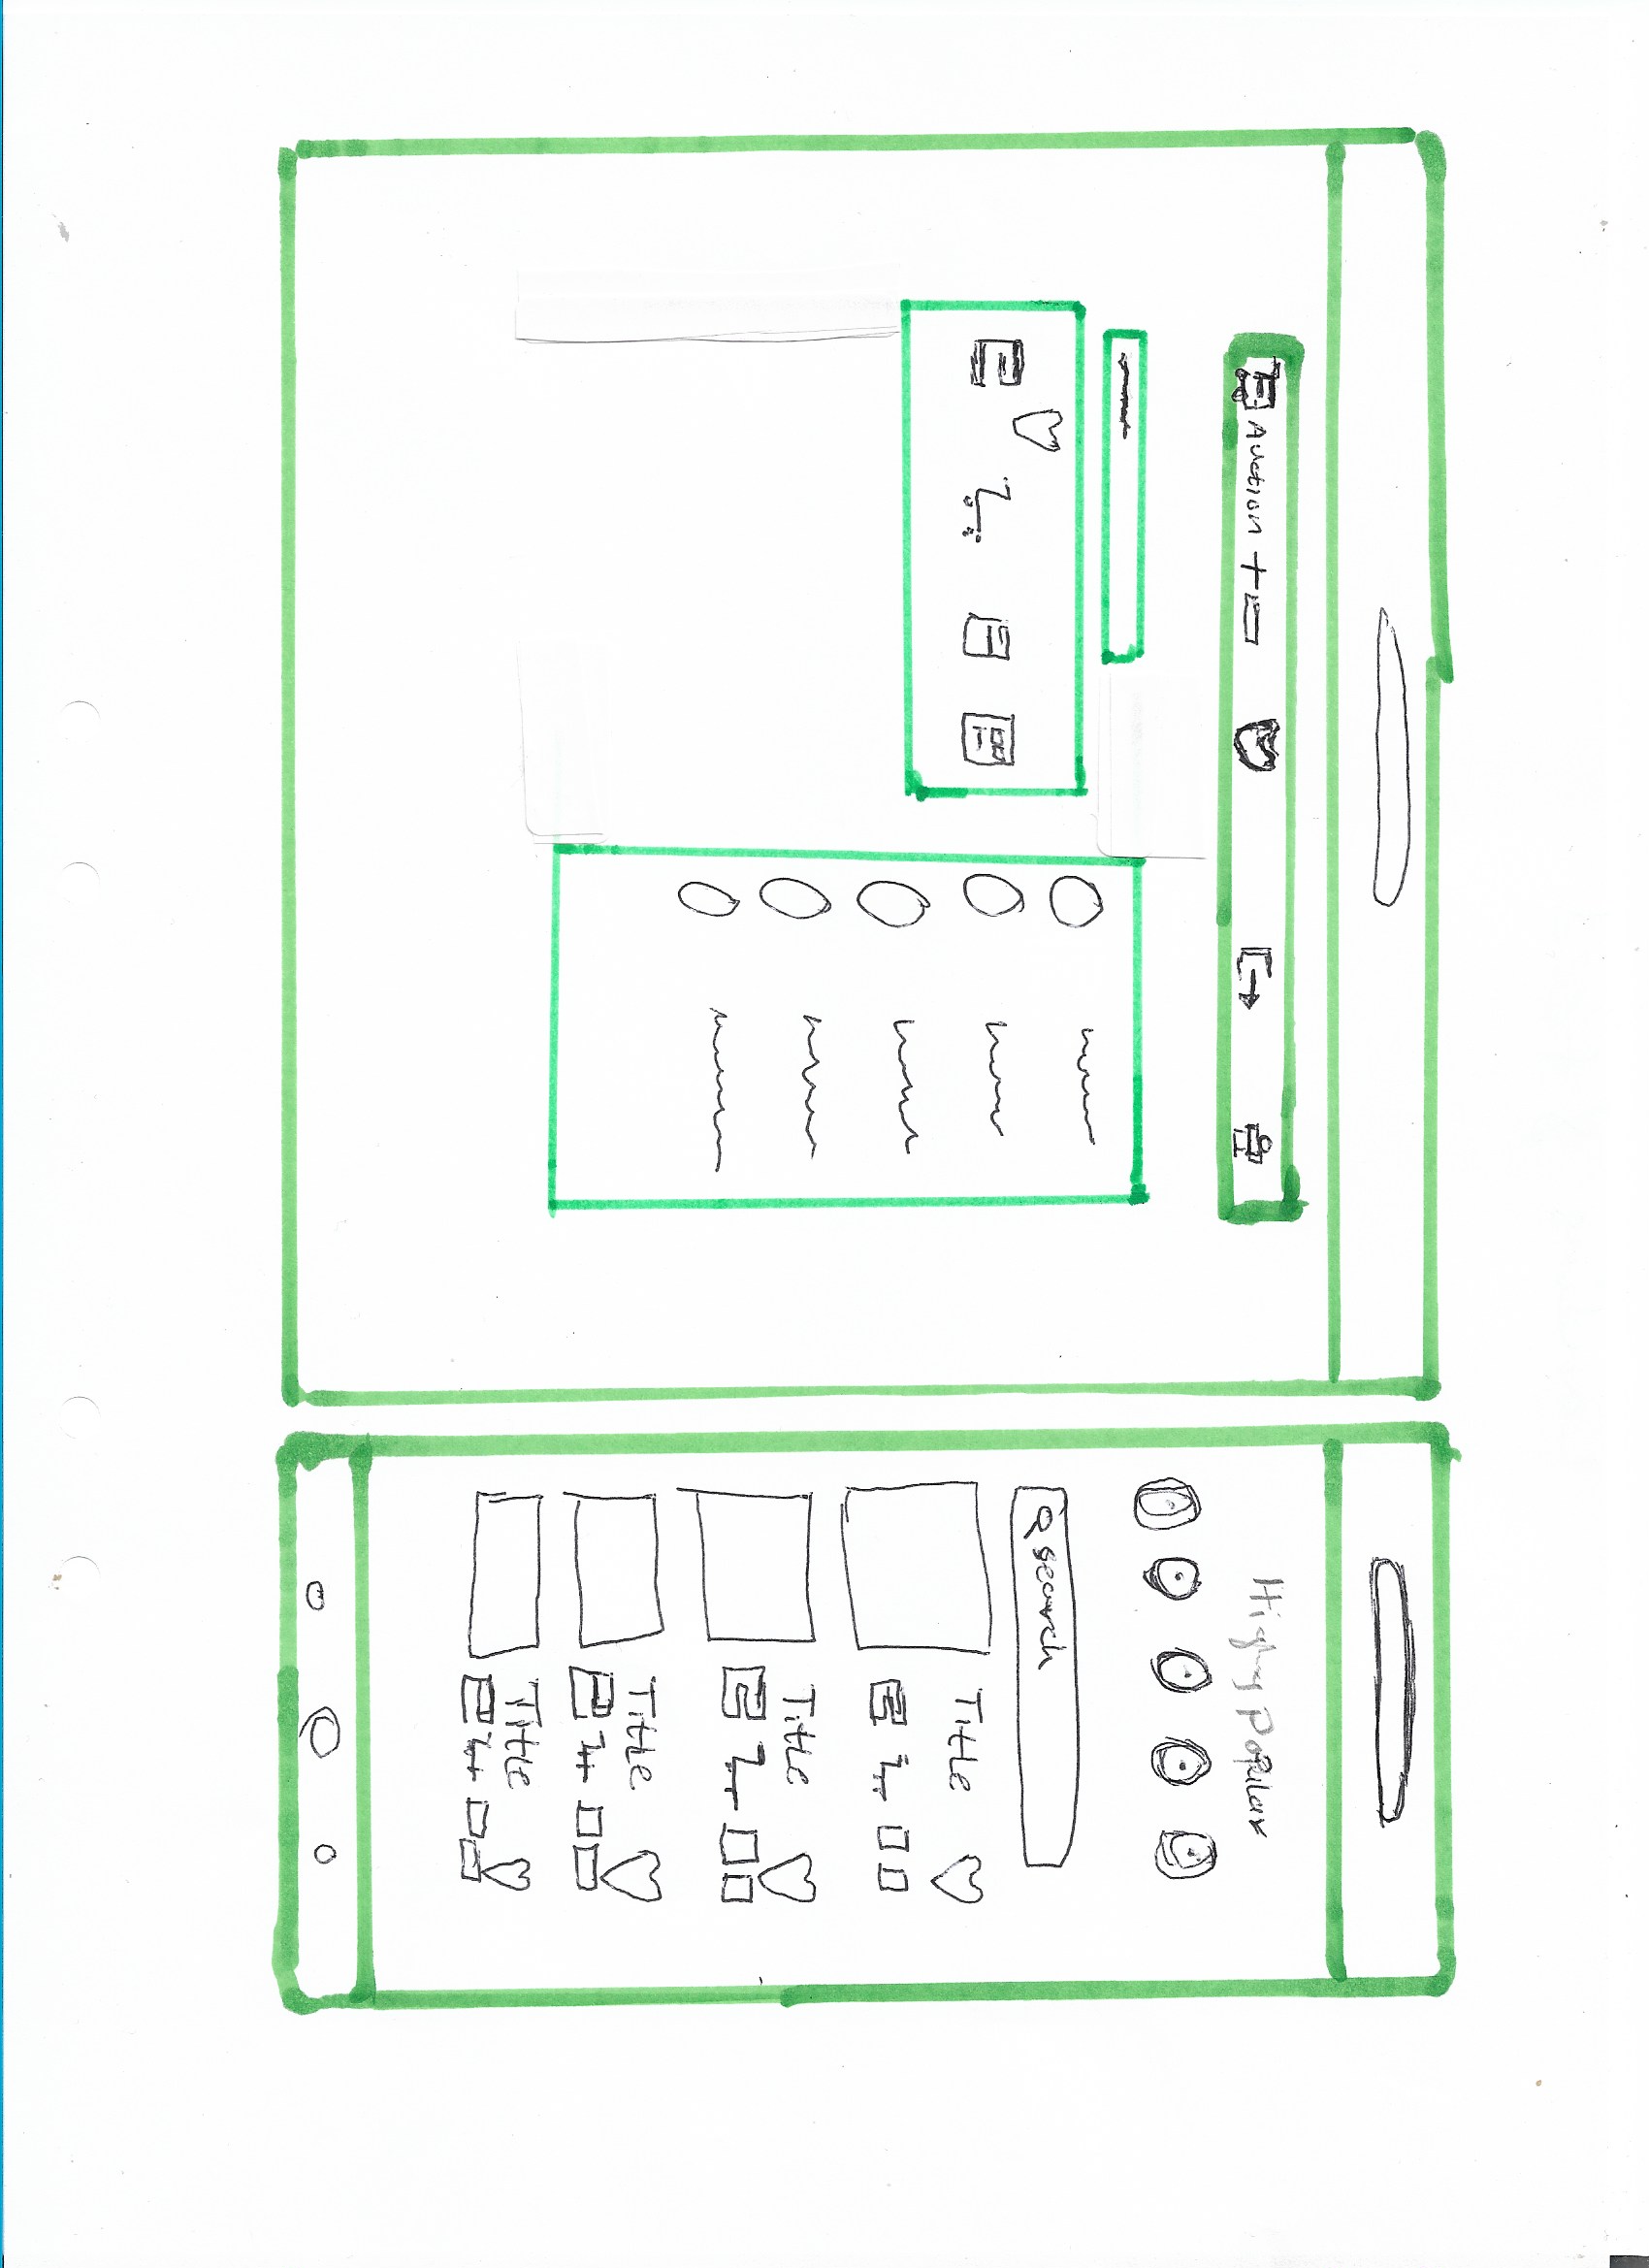 Auction
Highly Popular
search
Title
Title
Title
Title